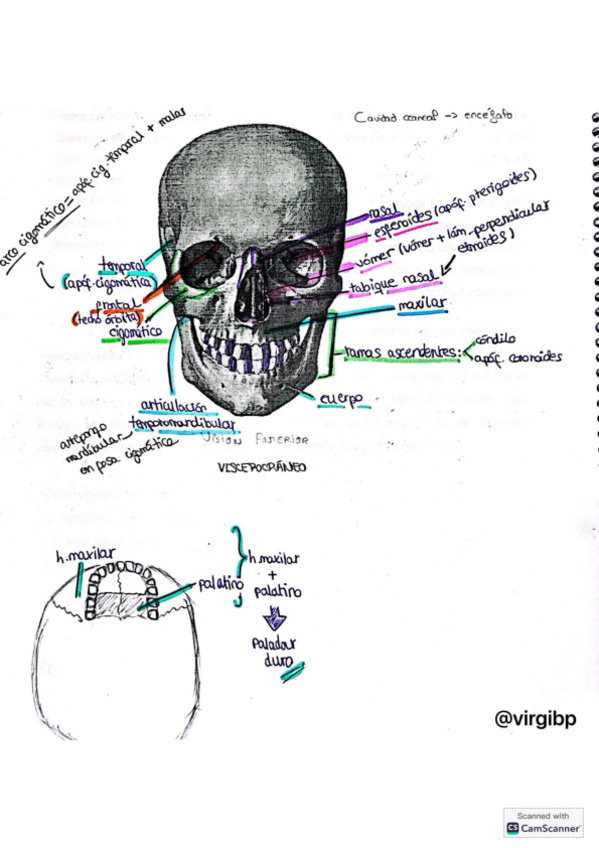 Cavidad craneal -> encéfalo
arco cigomático = apóf. cig. temporal + malar
nasal
esfenoides (apóf. pterigoides)
vómer (vómer + lám. perpendicular
etmoides)
tabique nasal
maxilar
ramas ascendentes:
cóndilo
apóf. coronoides
cuerpo
temporal
(apóf. cigomática)
frontal
(techo órbita)
cigomático
articulación
temporomandibular
mandibular
en fosa cigomática
VISIÓN ANTERIOR
VISCEROCRÁNEO
h. maxilar
palatino
h. maxilar
+
palatino
paladar
duro
@virgibp
Scanned with
CS CamScanner